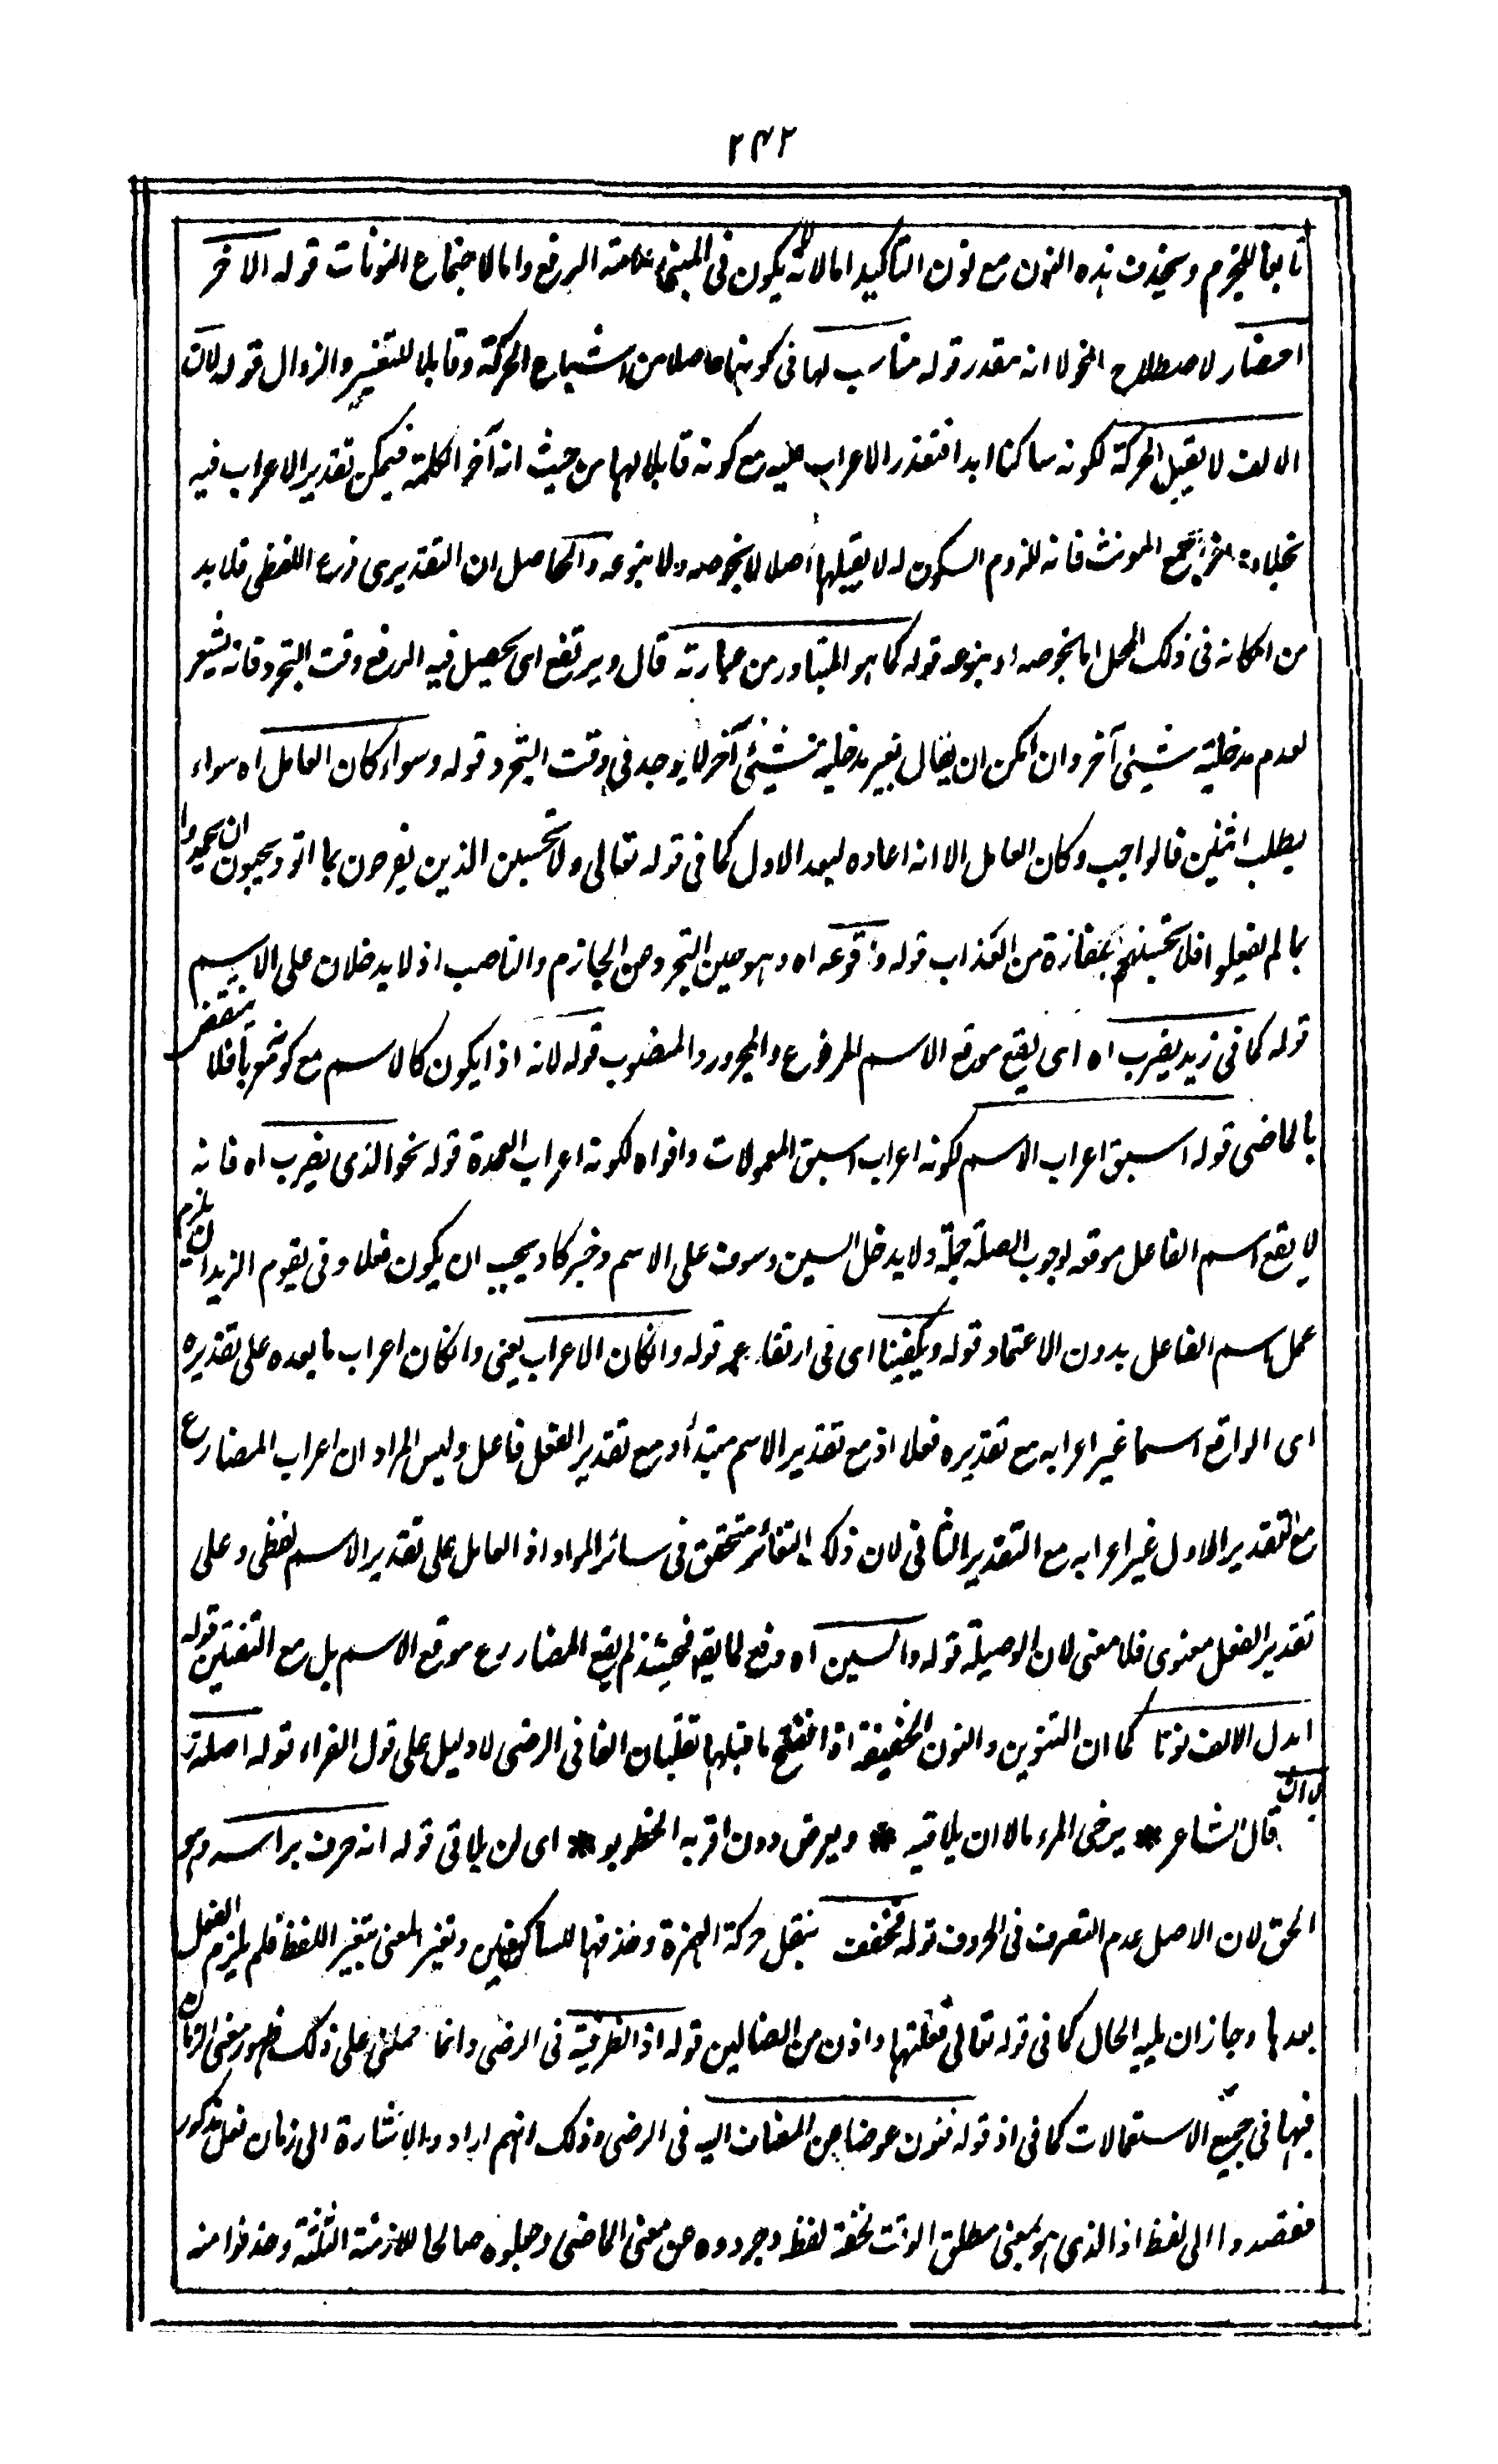 ٢٤٢
تابعا للجزم ويحذف هذه النون مع نون التاكيد اما لانه يكون فى المبنى علامة الرفع واما لاجتماع النونات قوله الاخر
احضار لاصطلاح النحو لا انه مقدر قوله مناسب لها فى كونها حاصلا من اشباع الحركة وقابلا للتغيير والزوال قوله لان
الالف لا يقبل الحركة لكونه ساكنا ابدا فتعذر الاعراب عليه مع كونه قابلا لها من حيث انه آخر الكلمة فيمكن تقدير الاعراب فيه
بخلاف آخر جمع المونث فانه للزوم السكون له لا يقبلها اصلا لا بخوصه ولا بنوعه والحاصل ان التقديرى فرع اللفظى فلا بد
من امكانه فى ذلك المحل اما بخوصه او بنوعه قوله كما هو المتبادر من عبارته قال ويرتفع اى يحصل فيه الرفع وقت التجرد فانه يشعر
لعدم مدخلية شيئ آخر وان امكن ان يقال بغير مدخلية شيئ آخر لا يوجد فى وقت التجرد قوله وسواء كان العامل اه سواء
يطلب اثنين فالواجب وكان العامل الا انه اعاده لبعد الاول كما فى قوله تعالى ولا تحسبن الذين يفرحون بما اتو ويحبون ان يحمدوا
بما لم يفعلوا فلا تحسبنهم بمفازة من العذاب قوله وقوعه اه وهو عين التجرد عن الجازم والناصب اذ لا يدخلان على الاسم
قوله كما فى زيد يضرب اه اى يقع موقع الاسم المرفوع والمجرور والمنصوب قوله لانه اذا يكون كالاسم مع كونه معربا فلا ينتقض
بالماضى قوله اسبق اعراب الاسم لكونه اعراب اسبق المعمولات واقواه لكونه اعراب العمدة قوله نحو الذى يضرب اه فانه
لا يقع اسم الفاعل موقعه لوجوب الصلة جملة ولا يدخل السين وسوف على الاسم وخبر كاد يجب ان يكون فعلا وفى يقوم الزيدان يلزم
عمل اسم الفاعل بدون الاعتماد قوله ويكفينا اى فى ارتفاعه قوله وانكان الاعراب يعنى وانكان اعراب ما بعده على تقديره
اى الواقع اسما غير اعرابه مع تقديره فعلا اذ مع تقدير الاسم مبتدأ ومع تقدير الفعل فاعل وليس المراد ان اعراب المضارع
مع التقدير الاول غير اعرابه مع التقدير الثانى لان ذلك التغائر متحقق فى سائر المواد اذ العامل على تقدير الاسم لفظى وعلى
تقدير الفعل معنوى فلا معنى لان الوصيلة قوله والسين اه دفع لما يقم فحينئذ لم يقع المضارع موقع الاسم بل مع التنفيس قوله
ابدل الالف نونا كما ان التنوين والنون الخفيفة اذا انفتح ما قبلها تقلبان الفا فى الرضى لا دليل على قول الفراء قوله اصله
لا ان قال الشاعر * يرجى المرء ما لا ان يلاقيه * ويعرض دون اقربه الخطوبو * اى لن يلاقى قوله انه حرف براسه وهو
الحق لان الاصل عدم التصرف فى الحروف قوله فخففت بنقل حركة الهمزة وحذفها للساكنين وتغير المعنى بتغير اللفظ فلم يلزم الفعل
بعدها وجاز ان يليه الحال كما فى قوله تعالى فعلتها واذن من الضالين قوله اذ الظرفية فى الرضى وانما حملنى على ذلك ظهور معنى الزمان
فيها فى جميع الاستعمالات كما فى اذ قوله فنون عوضا عن المضاف اليه فى الرضى وذلك انهم ارادوا الاشارة الى زمان فعل مذكور
فقصدوا الى لفظ اذ الذى هو بمعنى مطلق الوقت لخفة لفظه وجردوه عن معنى الماضى وجعلوه صالحا للازمنة الثلثة وحذفوا منه